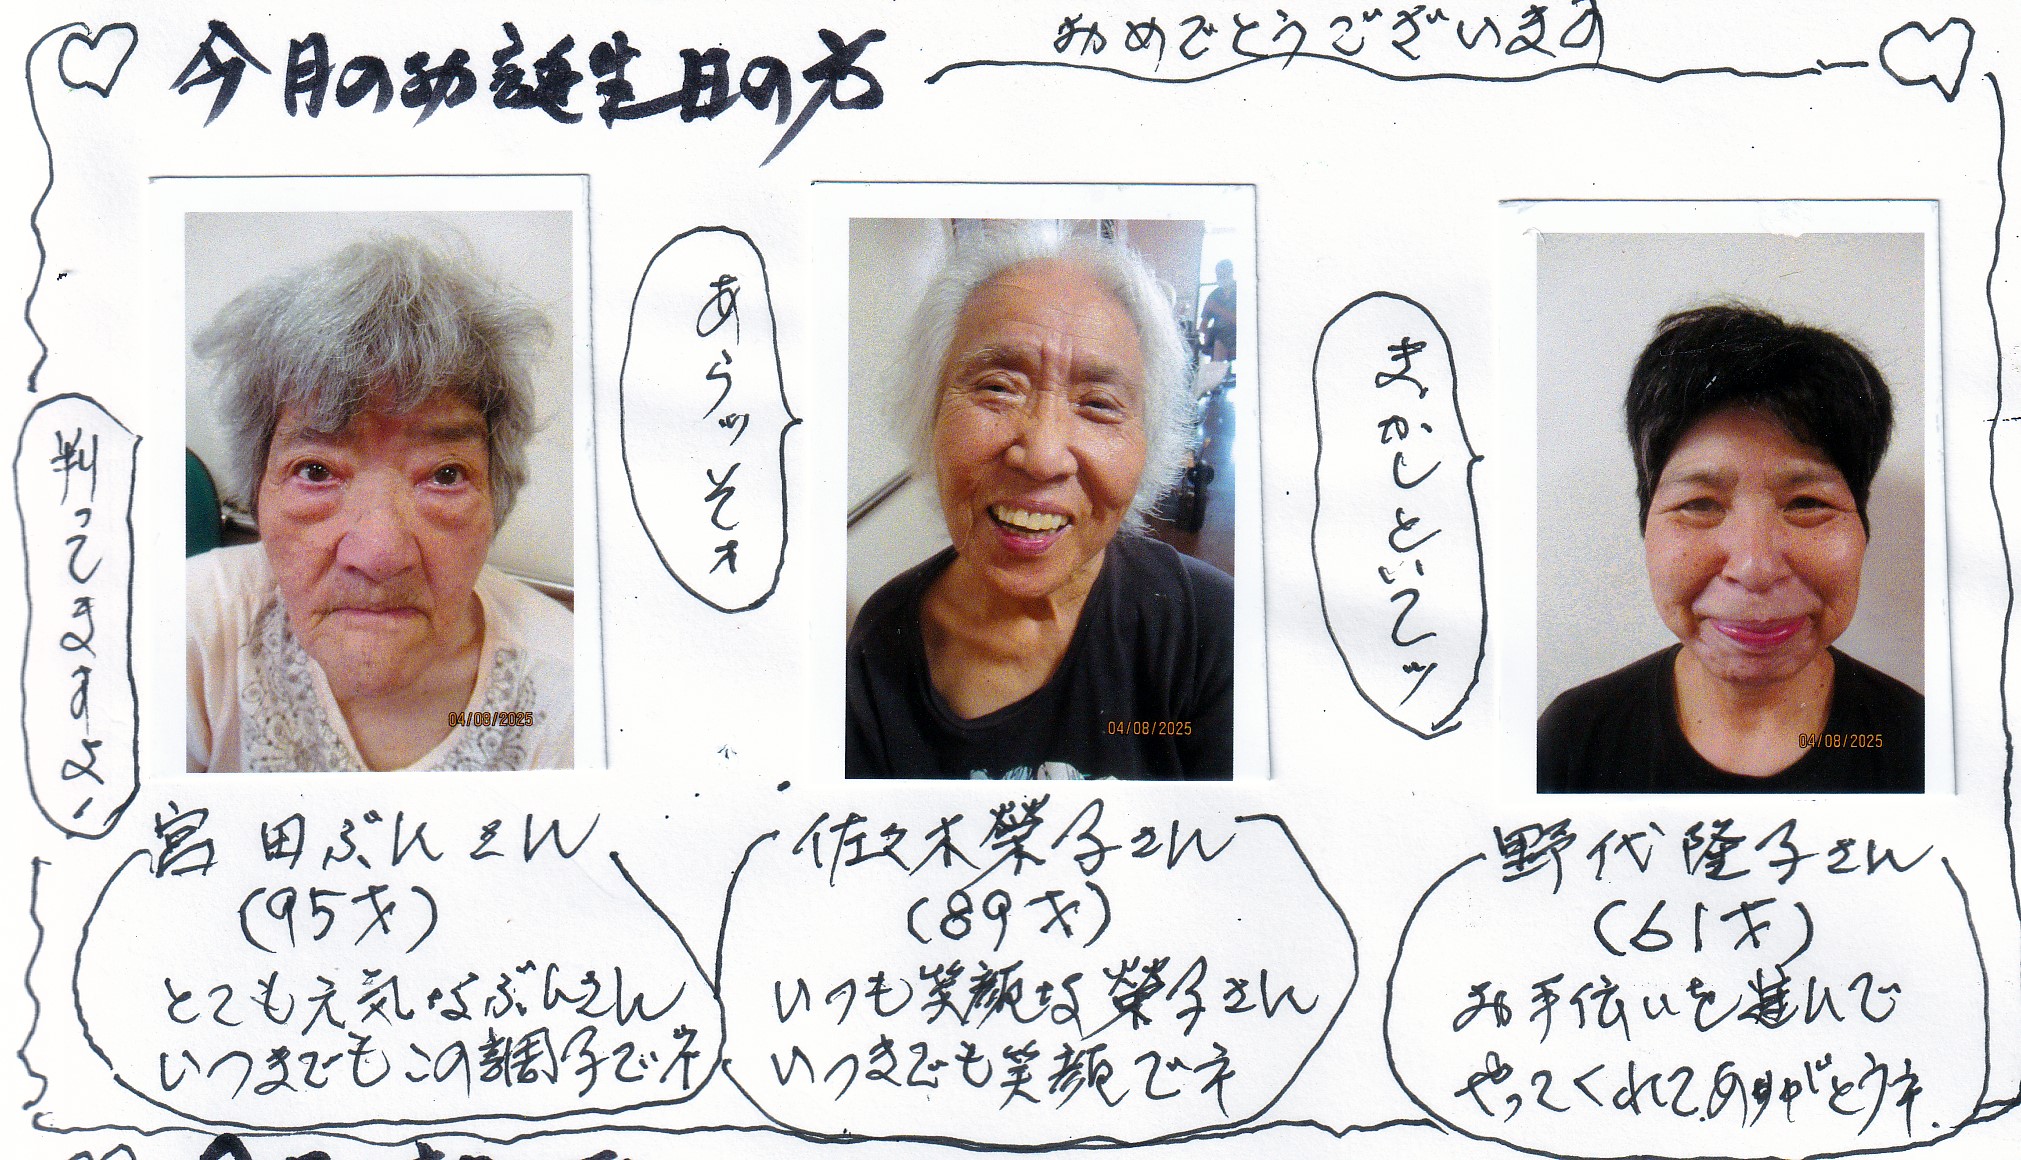 今月のお誕生日の方
おめでとうございます
あらッそオ
まかしといてッ
04/08/2025
04/08/2025
04/08/2025
宮田ぶんさん
(95才)
とても元気なぶんさん
いつまでもこの調子でネ
佐々木榮子さん
(89才)
いつも笑顔な榮子さん
いつまでも笑顔でネ
野代隆子さん
(61才)
お手伝いを進んで
やってくれてありがとうネ